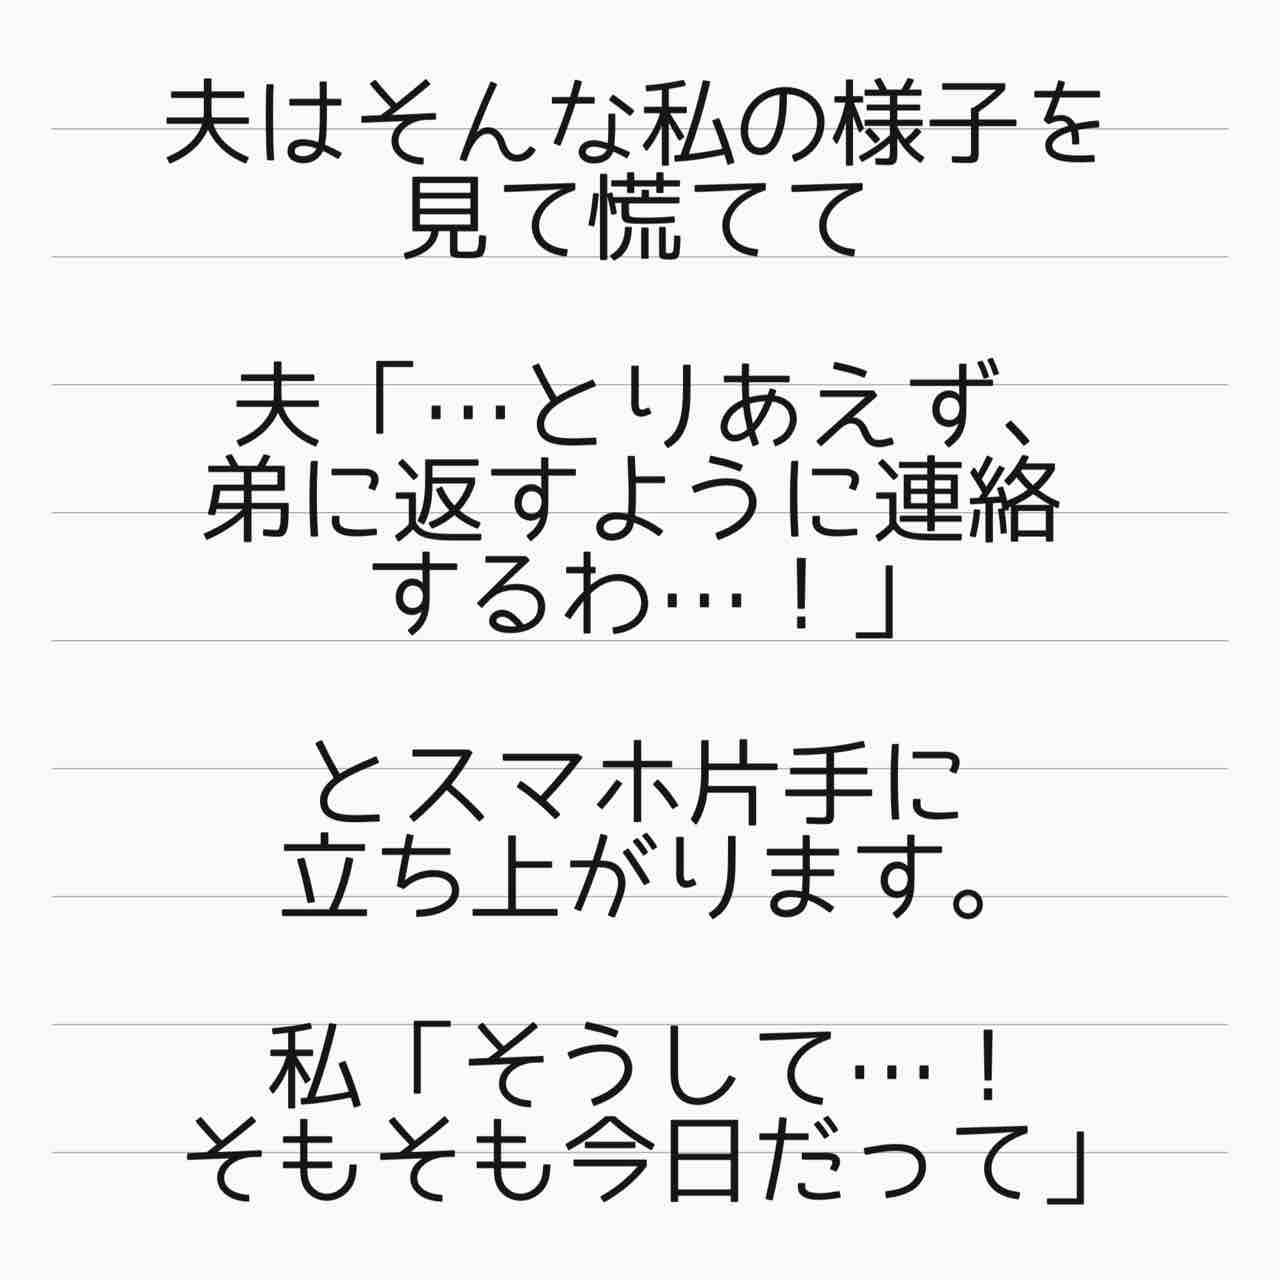 夫はそんな私の様子を
見て慌てて
夫「…とりあえず、
弟に返すように連絡
するわ…！」
とスマホ片手に
立ち上がります。
私「そうして…！
そもそも今日だって」